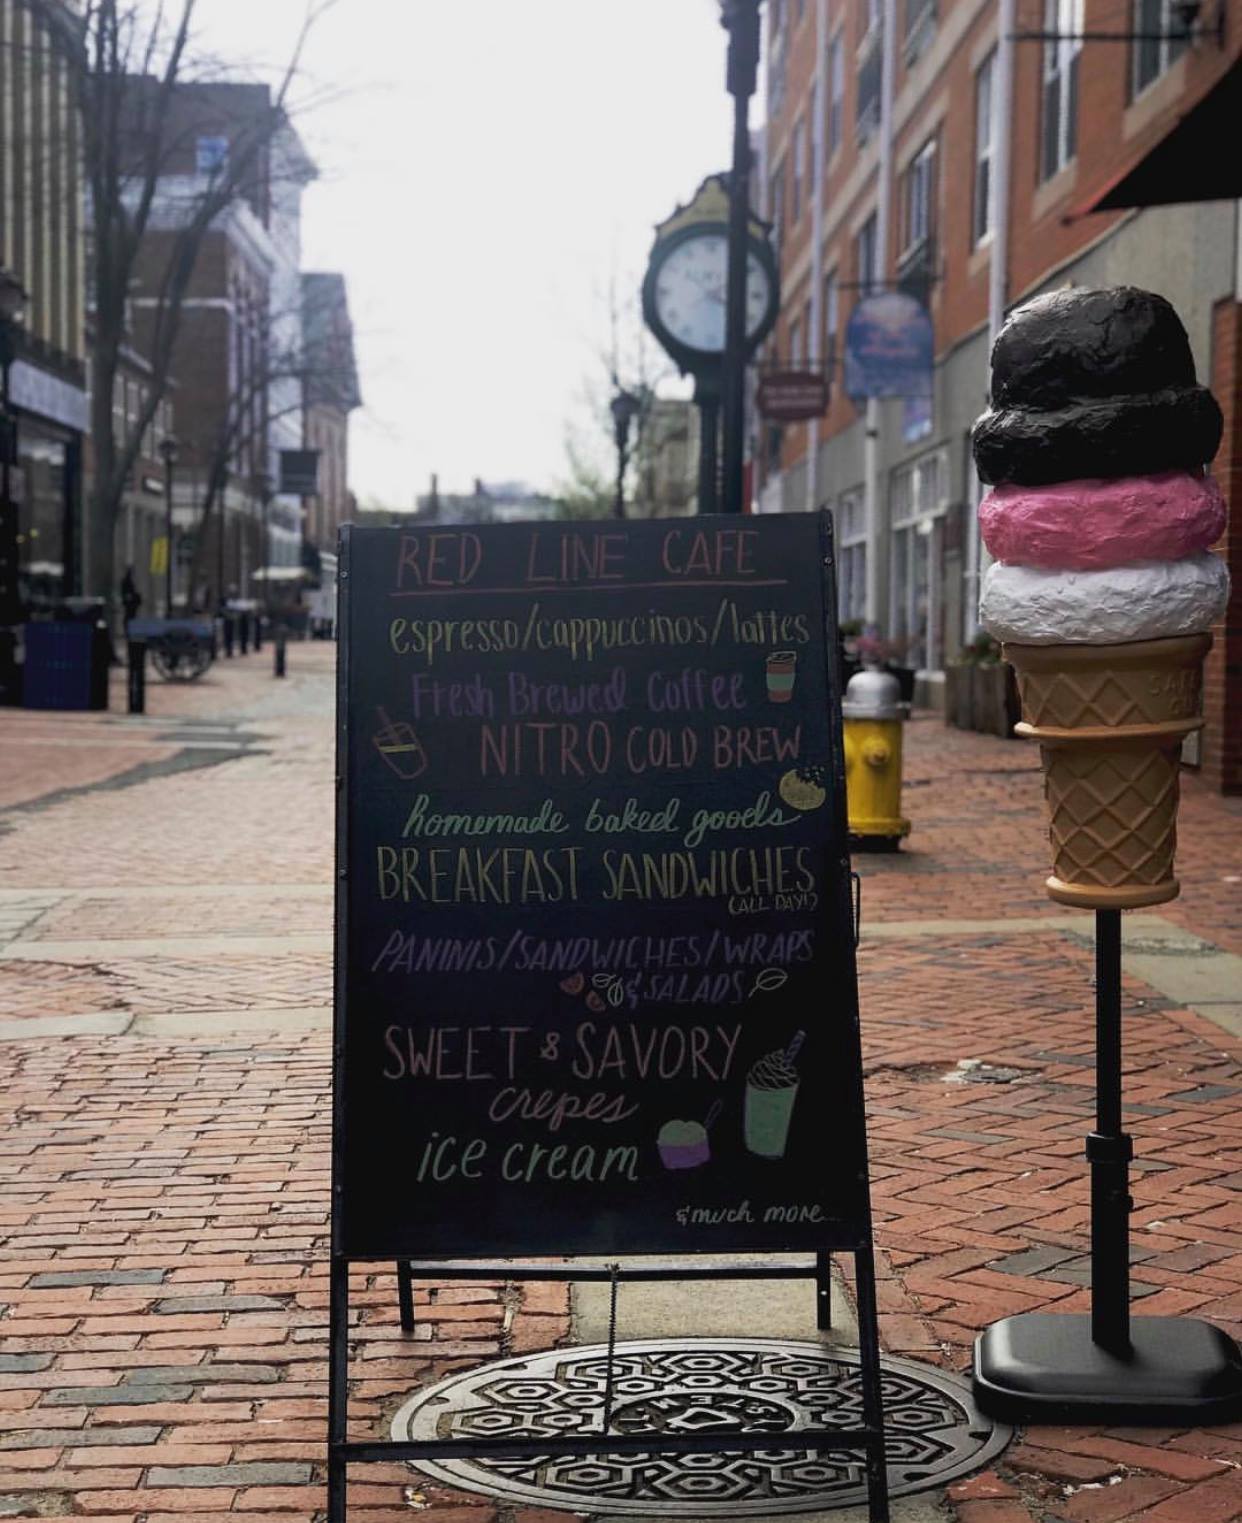 RED LINE CAFE
espresso/cappuccinos/lattes
Fresh Brewed Coffee
NITRO COLD BREW
homemade baked goods
BREAKFAST SANDWICHES
(ALL DAY!)
PANINIS/SANDWICHES/WRAPS
& SALADS
SWEET & SAVORY
crepes
ice cream
& much more...